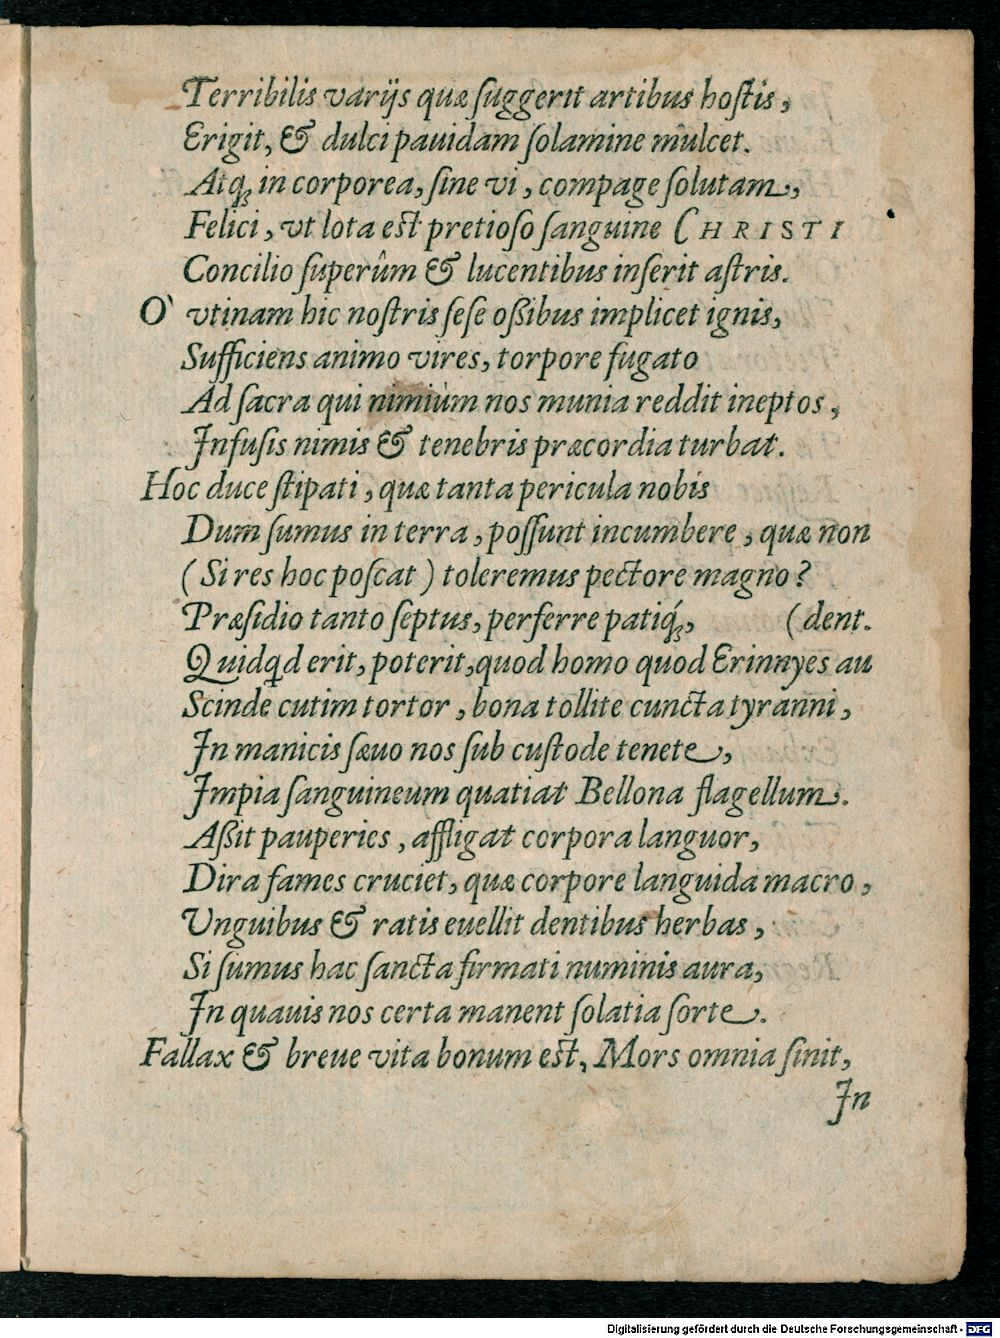 Terribilis varijs quæ ſuggerit artibus hoſtis,
Erigit, & dulci pauidam ſolamine mulcet.
Atq́; in corporea, ſine vi, compage ſolutam,
Felici, vt lota eſt pretioſo ſanguine CHRISTI
Concilio ſuperûm & lucentibus inſerit aſtris.
O` vtinam hic noſtris ſeſe oßibus implicet ignis,
Sufficiens animo vires, torpore fugato
Ad ſacra qui nimiùm nos munia reddit ineptos,
Infuſis nimis & tenebris præcordia turbat.
Hoc duce ſtipati, quæ tanta pericula nobis
Dum ſumus in terra, poſſunt incumbere, quæ non
(Si res hoc poſcat) toleremus pectore magno?
Præſidio tanto ſeptus, perferre patiq́;, (dent.
Quidqd erit, poterit, quod homo quod Erinnyes au
Scinde cutim tortor, bona tollite cuncta tyranni,
In manicis ſæuo nos ſub cuſtode tenete,
Impia ſanguineum quatiat Bellona flagellum.
Aßit pauperies, affligat corpora languor,
Dira fames cruciet, quæ corpore languida macro,
Unguibus & ratis euellit dentibus herbas,
Si ſumus hac ſancta firmati numinis aura,
In quauis nos certa manent ſolatia ſorte.
Fallax & breue vita bonum eſt, Mors omnia ſinit,
In
Digitalisierung gefördert durch die Deutsche Forschungsgemeinschaft - DFG